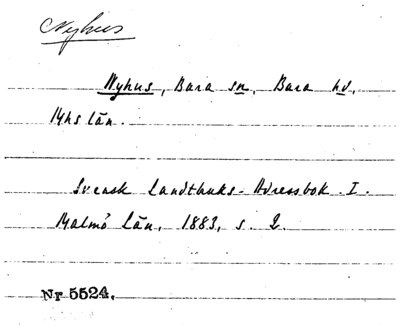 Nyhus
Nyhus, Bara sn, Bara hd,
Mhs län.
Svensk Landtbruks-Adressbok. I.
Malmö Län, 1883, s. 2.
Nr 5524.